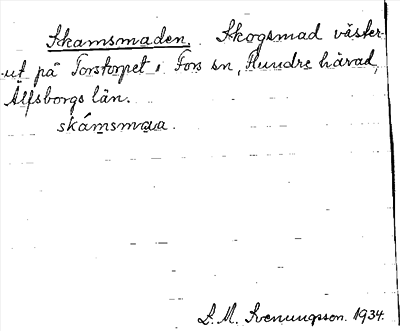 Skamsmaden. Skogsmad väster-
ut på Torstorpet i Fors sn, Flundre härad,
Älfsborgs län.
skámsmaa.
L. M. Svenungsson. 1934.